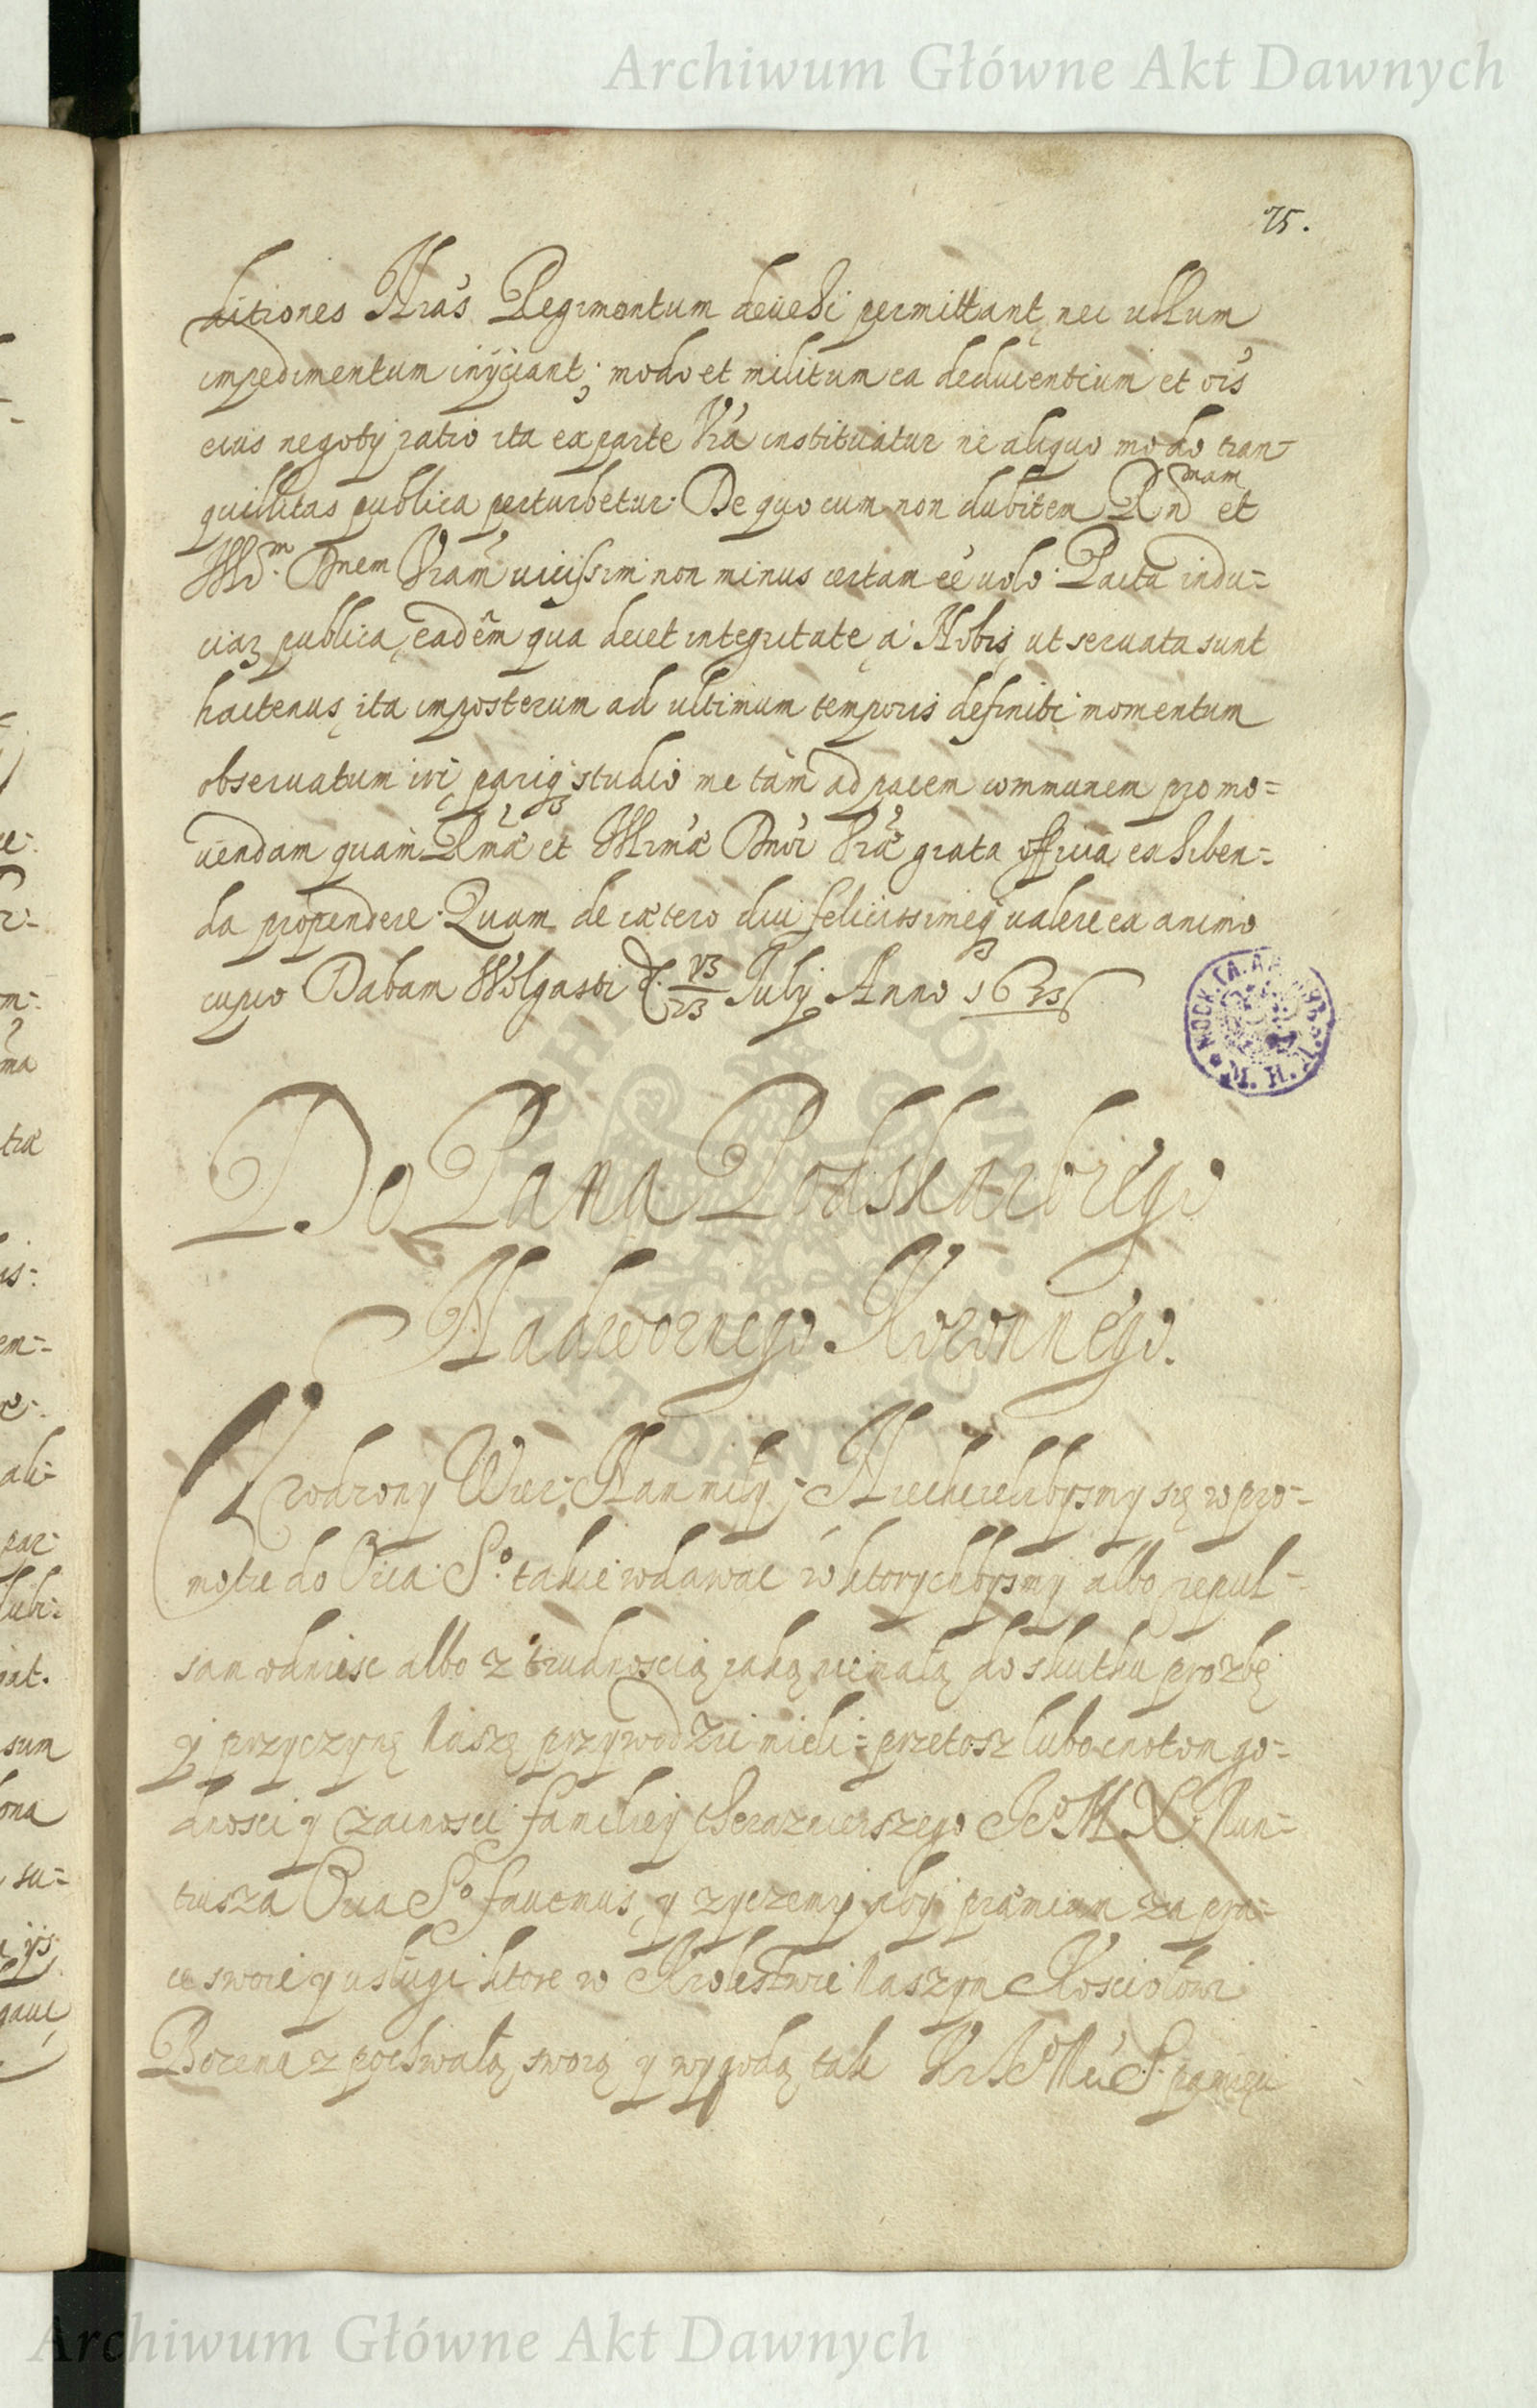 Archiwum Główne Akt Dawnych
75.
ditiones Nrãs Regimontum devehi permittant, nec ullum
impedimentum inijciant; modo et militum ea deducentium et õis
eius negotij ratio ita ex parte Vrã instituatur ne aliquo modo tran-
quillitas publica perturbetur. De quo cum non dubitem Rnd mam et
Illd.m Dnem Vram vicissim non minus certam eẽ volo. Pacta indu-
ciar publica, eadẽm qua decet integritate, a Nobis, ut servata sunt
hactenus, ita imposterum ad ultimum temporis definiti momentum
observatum iri, pariq studio me tam ad pacem communem promo-
vendam quam Rmæ et Illrmæ Dnoi Vræ grata officia exhiben-
da propendere. Quam de cætero diu felicissimeq valere ex animo
cupio Dabam Wolgasti d. 13/23 Julij Anno 1633
Do Pana Podskarbiego
Nadwornego Koronnego.
Urodzony Wier: Nam miły. Niechcielibysmy się w pro-
motie do Oica S.o takie wdawac w ktorychbysmy albo repul-
sam odniesc albo z trudnoscią iaką niemałą do skutku prozbę
y przyczynę Naszę przywodzic mieli: przetosz lubo cnotom go-
dnosci y zacnosci familiey theraznieyszego Je.o M X Nun-
tiusza Oica S.o favemus, y zyczemy aby præmium za pra-
ce swoie y usługi ktore w Krolestwie Naszym Kosciołowi
Bozemu z pochwałą swoią y wygodą tak Kr Je.o Mci S. pamięci
Archiwum Główne Akt Dawnych